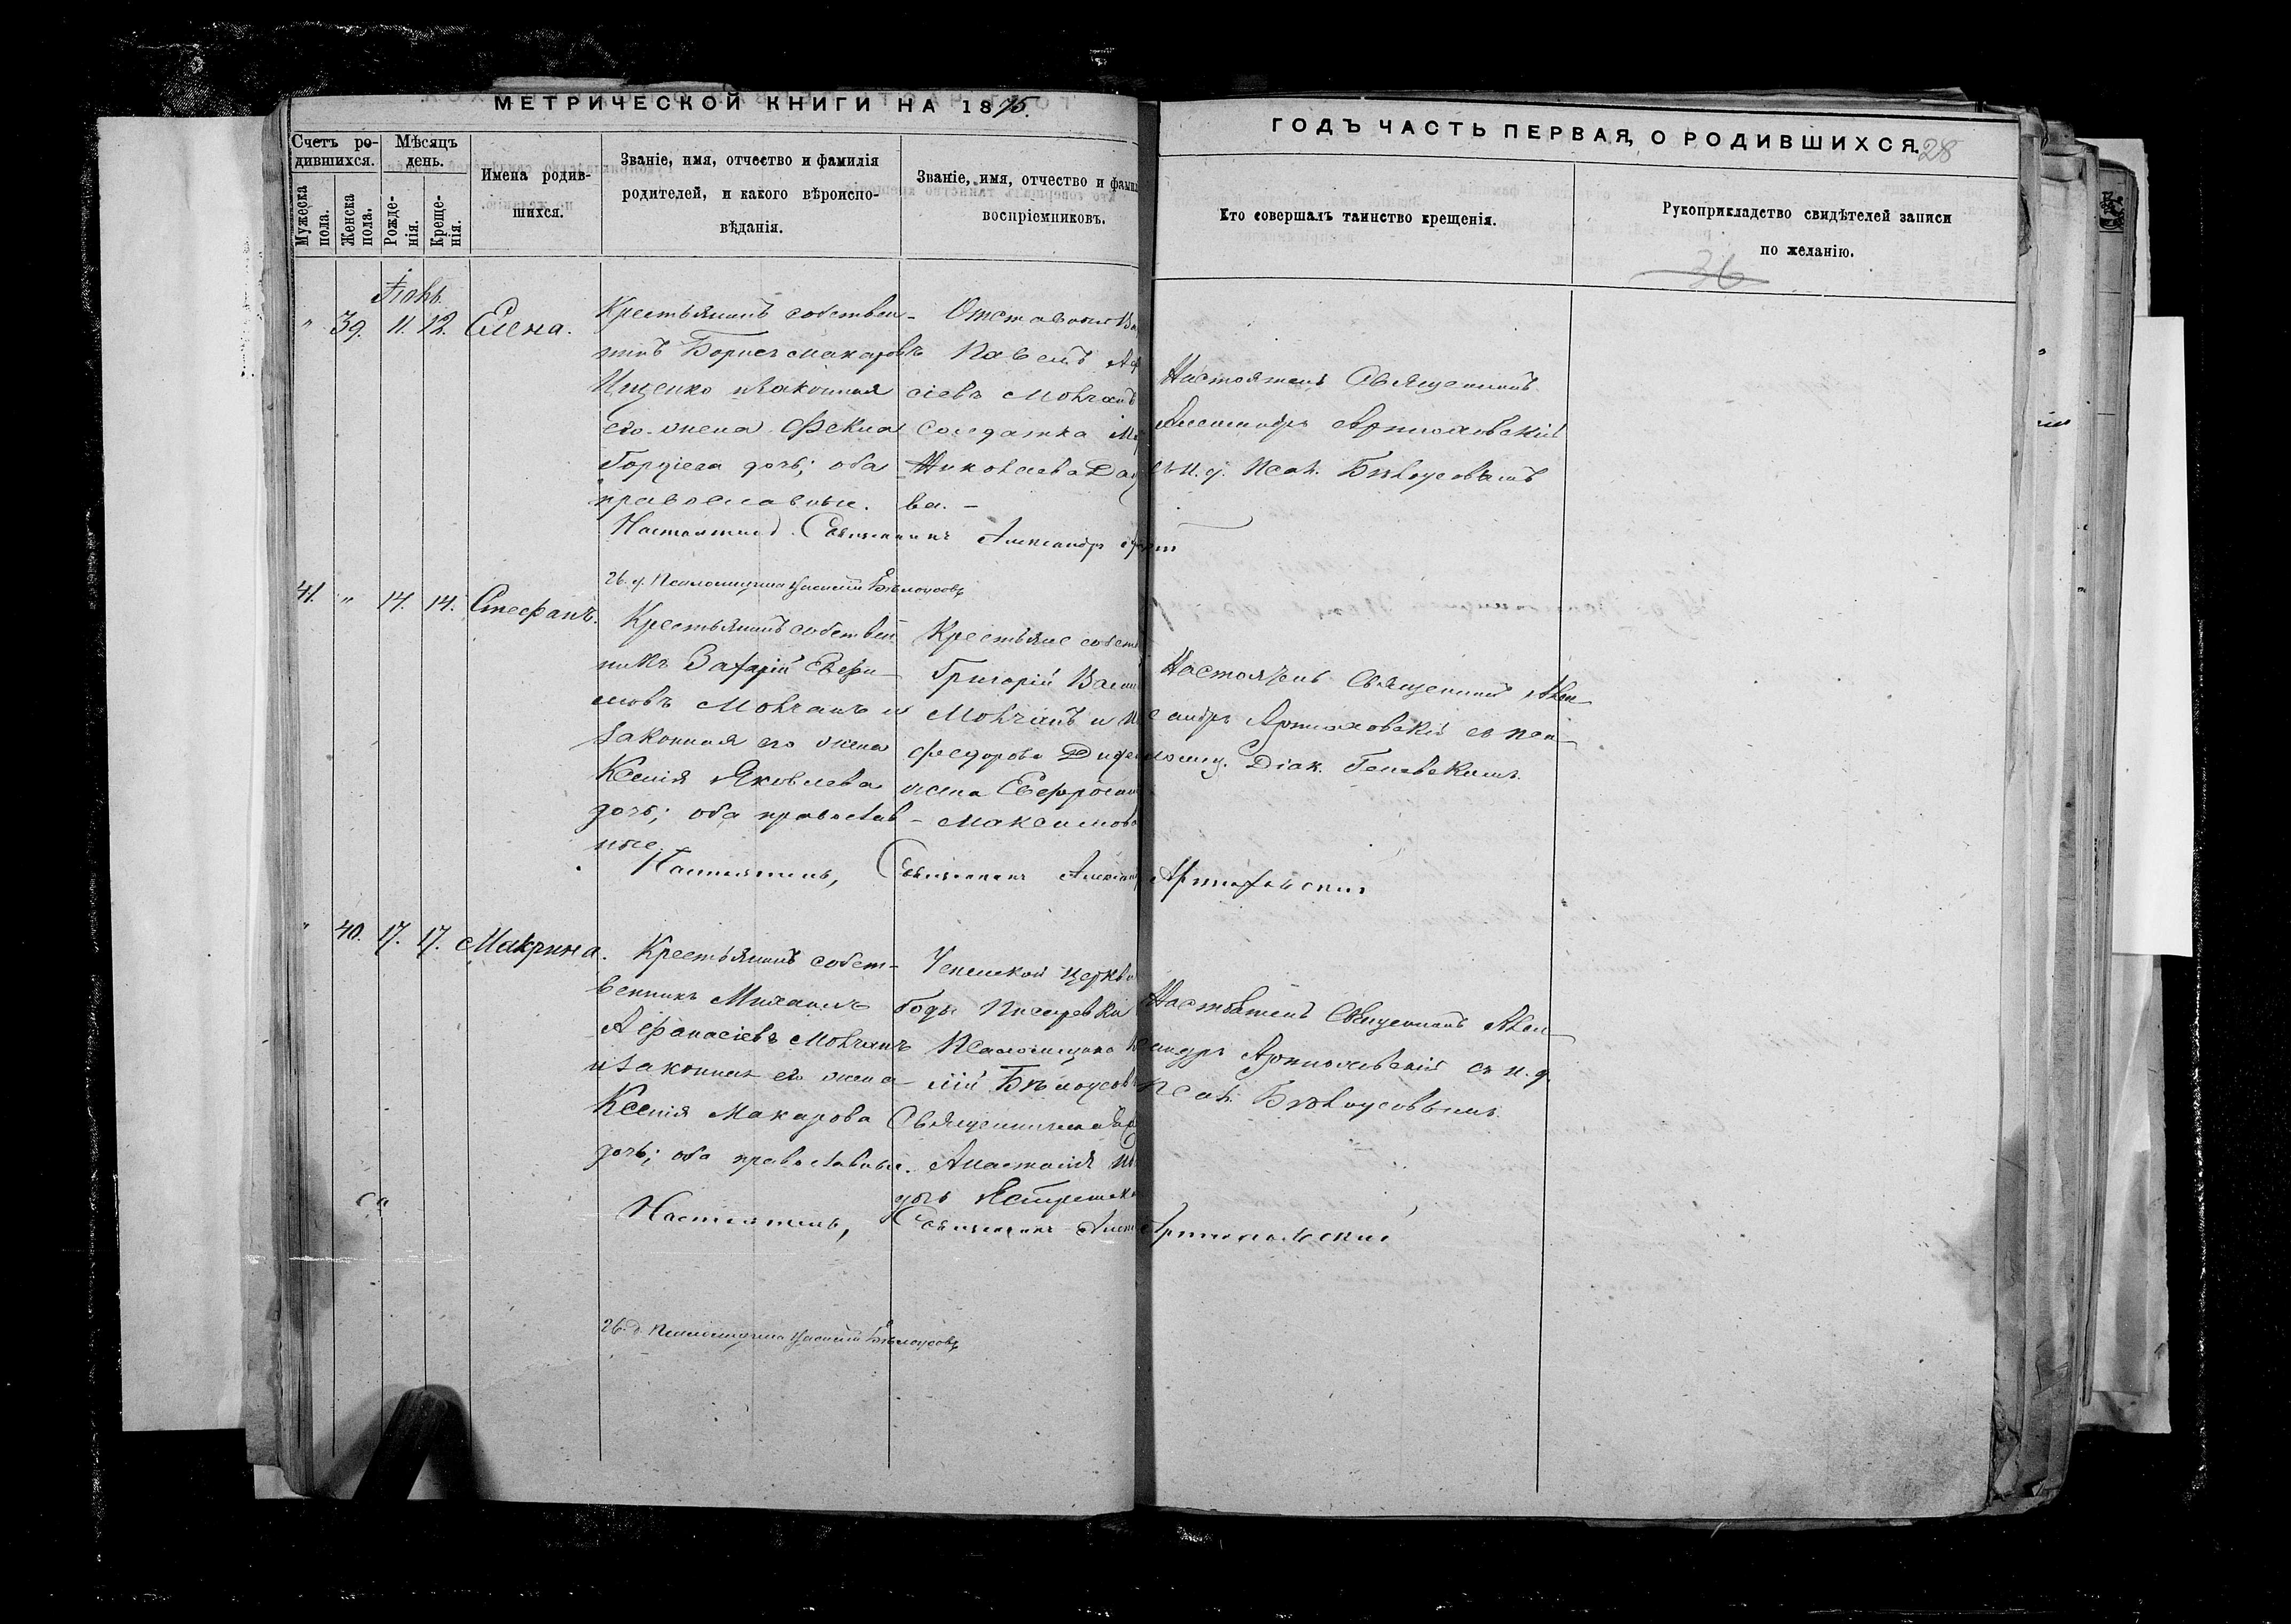 МЕТРИЧЕСКОЙ КНИГИ НА 1875.
Счетъ ро-
дившихся.
Мужеска пола.
Женска пола.
Мѣсяцъ
день.
Рожде-
нія.
Креще-
нія.
Имена родив-
шихся.
Званіе, имя, отчество и фамилія
родителей, и какого вѣроиспо-
вѣданія.
Званіе, имя, отчество и фами
воспріемниковъ.
ГОДЪ ЧАСТЬ ПЕРВАЯ, О РОДИВШИХСЯ.
28
Кто совершалъ таинство крещенія.
Рукоприкладство свидѣтелей записи
по желанію.
36
Іюнь
" 39. 11. 12. Елена.
Крестьянинъ собствен-
никъ Борисъ Макаровъ
Ищенко и законная
его жена Фекла
Гордіева дочь; оба
православные.
Отставной
Павелъ Аф
сіевъ Молчанъ
Солдатка
Николаева
ва. -
Настоятель Священникъ
Александръ Артюховскій
съ и. д. Псал. Бѣлоусовымъ
Настоятель Священникъ Александръ
И. д. Псаломщика Бѣлоусовъ
41. " 14. 14. Стефанъ.
Крестьянинъ собствен
никъ Захарій Евфи-
мовъ Молчанъ и
законная его жена
Ксенія Яковлева
дочь; оба православ-
ные.
Крестьяне собст
Григорій Васил
Молчанъ и
Федорова
жена Евфросин
Максимова
Настоятель Священникъ Алек-
сандръ Артюховскій съ пса-
ломщ. Діак.
Настоятель, Священникъ Александр Артюховскій
" 40. 17. 17. Макрина.
Крестьянинъ собст-
венникъ Михаилъ
Афанасіевъ Молчанъ
и законная его жена
Ксенія Макарова
дочь; оба православные.
Успенской церкви
боды Писаревки
Псаломщикъ
лій Бѣлоусовъ
Священническая
Анастасія
дочь
Настоятель Священникъ Алек-
сандръ Артюховскій съ и. д.
Псал. Бѣлоусовымъ.
Настоятель, Священникъ Алекс Артюховскій
И. д. Псаломщика Бѣлоусовъ